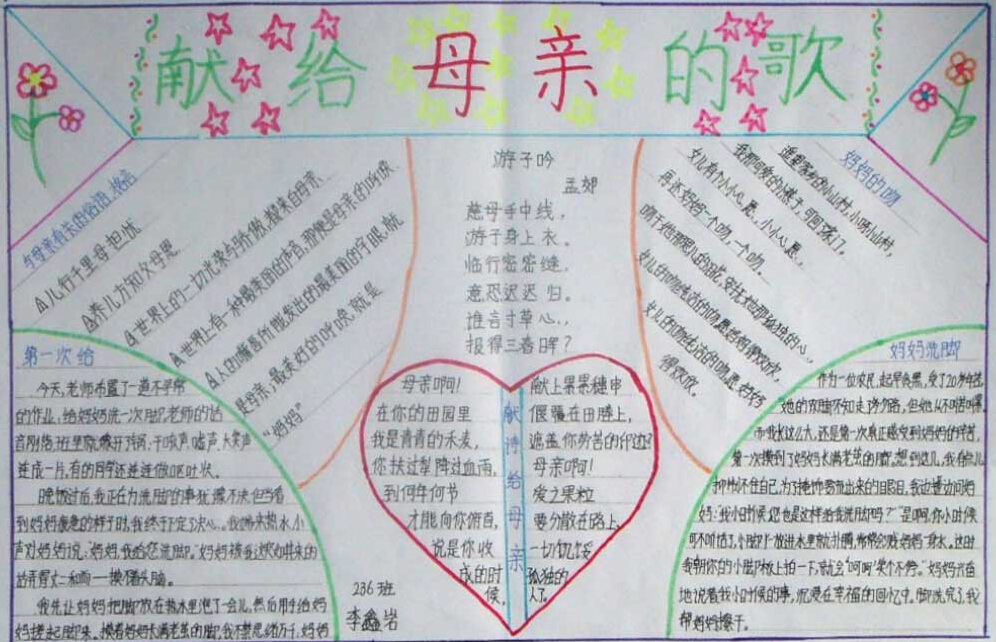 献给母亲的歌
与母亲有关的俗语、格言
△儿行千里母担忧
△养儿方知父母恩
△世界上的一切光荣与骄傲,都来自母亲
△世界上有一种最美丽的声音,那便是母亲的呼唤
△人的嘴唇所能发出的最美的字眼,就
是母亲,最美好的呼唤,就是
"妈妈"
游子吟
孟郊
慈母手中线,
游子身上衣。
临行密密缝,
意恐迟迟归。
谁言寸草心,
报得三春晖?
妈妈的吻
在那遥远的小山村,小呀小山村,
我那可爱的小燕子,可回了家门,
女儿有个小小心愿,小小心愿,
再还妈妈一个吻,一个吻。
第一次给
今天,老师布置了一道不寻常
的作业,给妈妈洗一次脚,老师的话
音刚落,班里
连成一片,有的同学还连连做呕吐状。
晚饭过后,我正在为洗脚的事犹豫不决,但当看
到妈妈疲惫的样子时,我终于下定了决心。我端来热水,小
声对妈妈说:"妈妈,我给您洗脚。"妈妈被我这突如其来的
话弄得丈二和尚——摸不着头脑。
我先让妈妈把脚放在热水里泡了一会儿,然后用手给妈
妈搓起脚来。摸着妈妈长满老茧的脚,我不禁思绪万千,妈妈
母亲啊!
在你的田园里
我是青青的禾麦,
你扶过犁降过血雨,
到何年何节
才能向你俯首,
说是你收
成的时
候,
献诗给母亲
献上累累穗串
偎依在田塍上,
遮盖你劳苦的
母亲啊!
爱之果粒
要分散在路上,
一切饥饿
孤独的
人了。
236班
李鑫岩
妈妈洗脚
作为一位农民,起早贪黑,受了20多年苦,
她的双脚不知走了多少路,但她从不叫苦叫累。
而我长这么大,还是第一次真正感受到妈妈的辛苦,
第一次摸到了妈妈长满老茧的脚,想到这儿,我有些儿
抑制不住自己,为了掩饰要流出来的眼泪,我边搓边问妈
妈:"我小时候,您也是这样给我洗脚吗?""是啊,你小时候
可不听话了,小脚丫放进水里就扑腾,常常会溅妈妈一身水。这时
我朝你的小脚板上拍一下,就会'呵呵'笑个不停。"妈妈兴奋
地说着我小时候的事,沉浸在幸福的回忆中,脚洗完了,我
帮妈妈擦干。